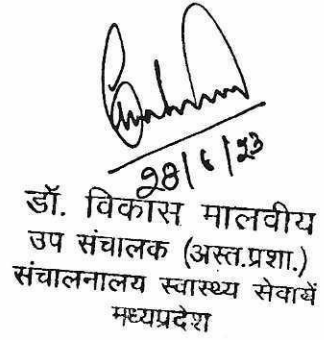 28/6/23
डॉ. विकास मालवीय
उप संचालक (अस्त.प्रशा.)
संचालनालय स्वास्थ्य सेवायें
मध्यप्रदेश